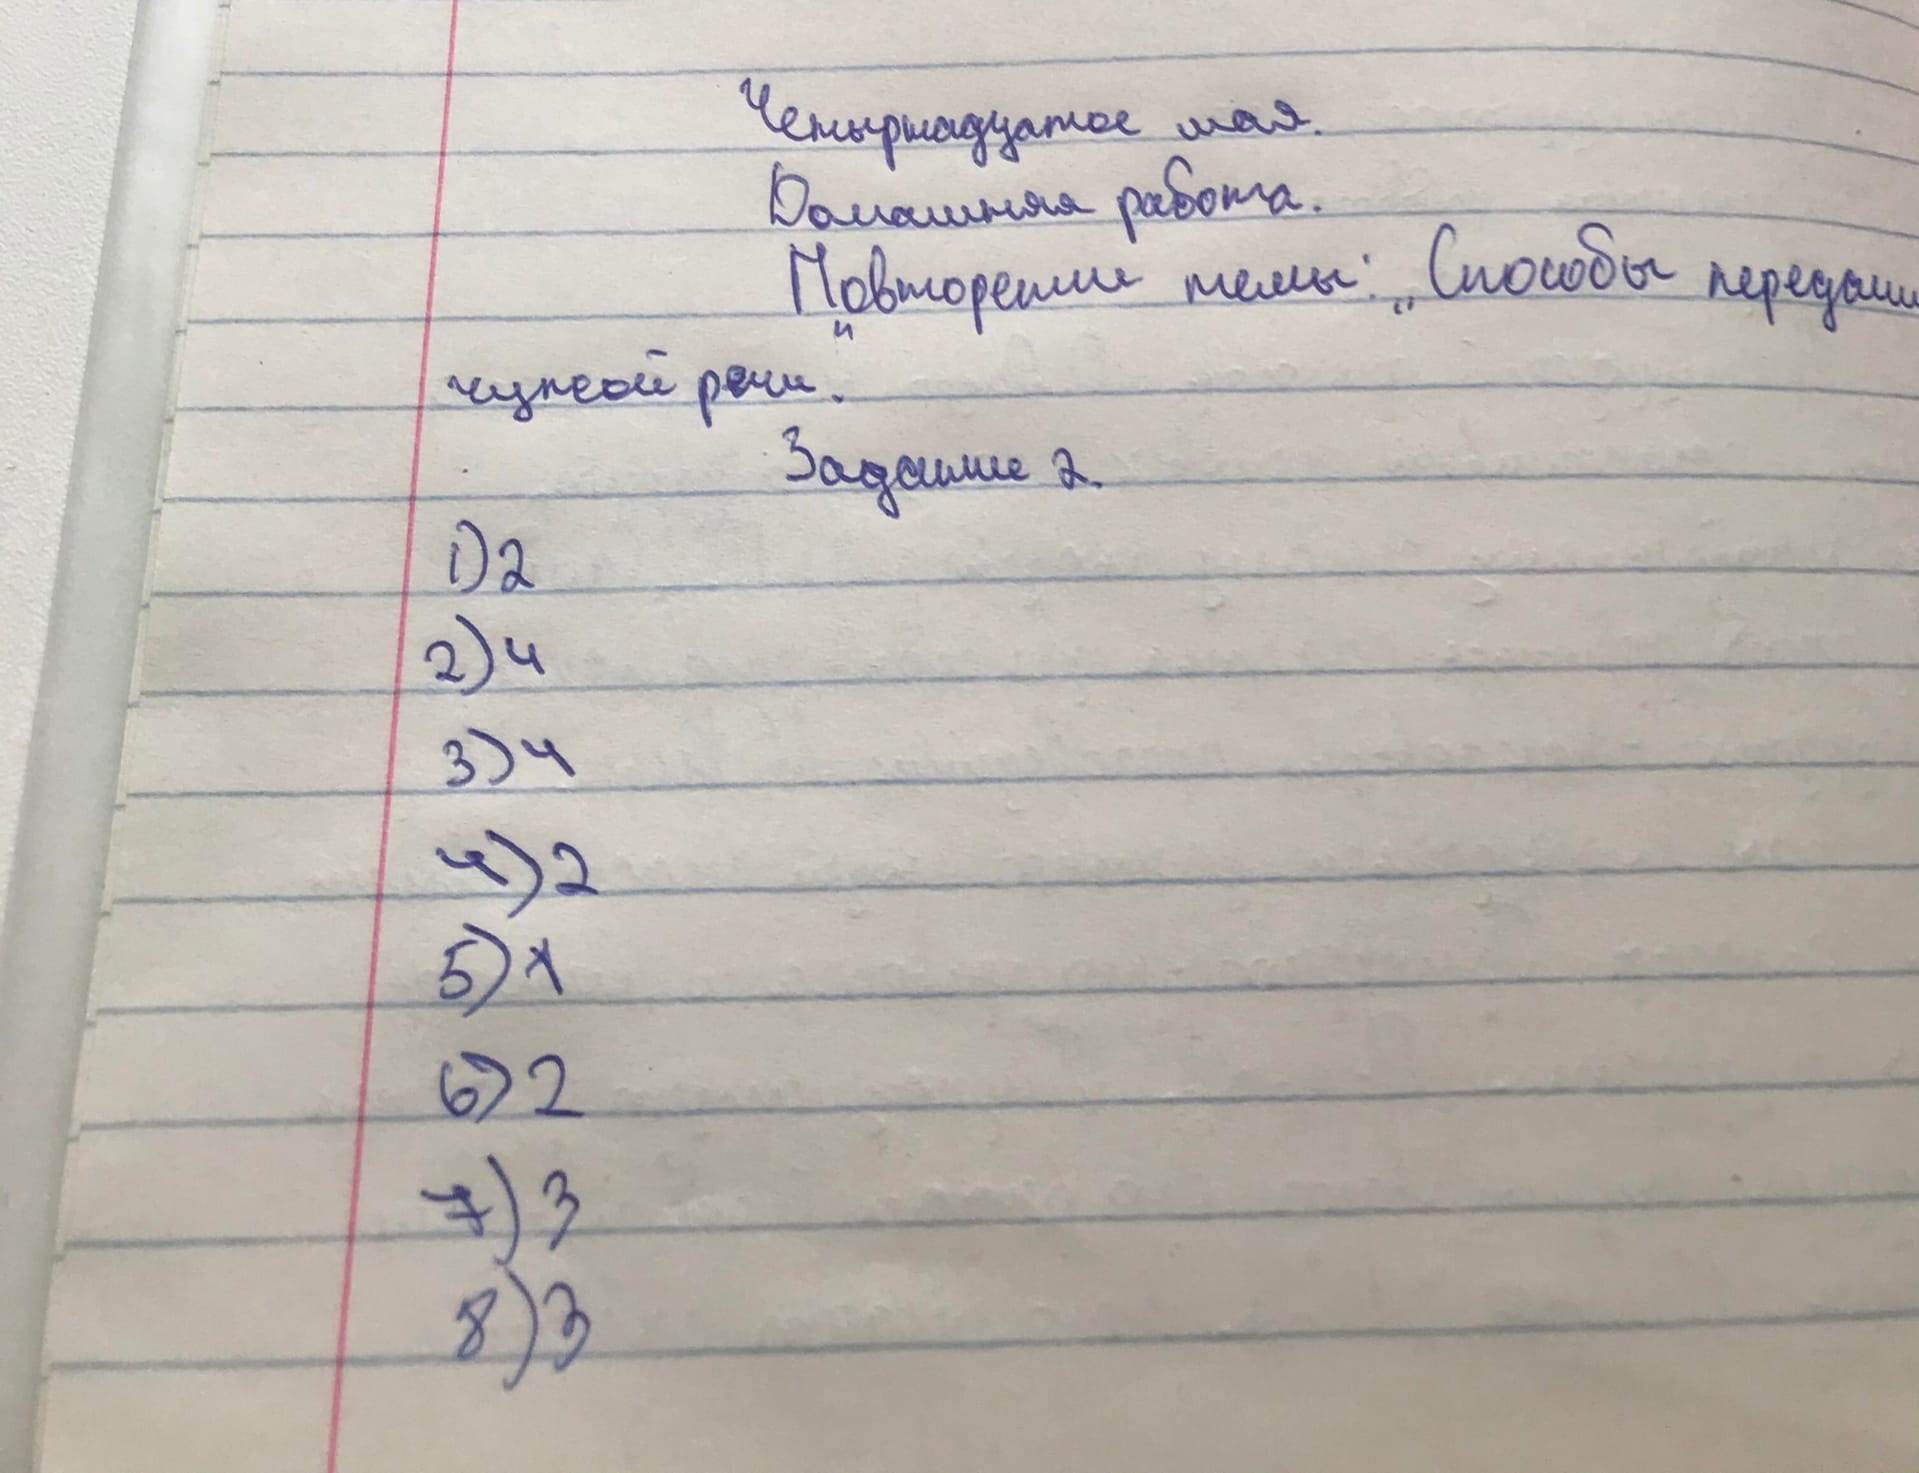 Четырнадцатое мая.
Домашняя работа.
Повторение темы: „Способы передачи
чужой речи".
Задание 2.
1) 2
2) 4
3) 4
4) 2
5) 1
6) 2
7) 3
8) 3